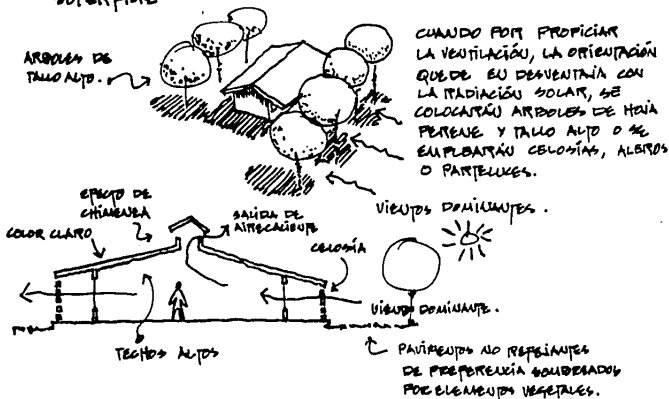 ARBOLES DE
TALLO ALTO.
CUANDO POR PROPICIAR
LA VENTILACIÓN, LA ORIENTACIÓN
QUEDE EN DESVENTAJA CON
LA RADIACIÓN SOLAR, SE
COLOCARÁN ARBOLES DE HOJA
PERENE Y TALLO ALTO O SE
EMPLEARÁN CELOSÍAS, ALEROS
O PARTELUCES.
VIENTOS DOMINANTES.
EFECTO DE
CHIMENEA
COLOR CLARO
SALIDA DE
AIRE CALIENTE
CELOSÍA
VIENTO DOMINANTE.
TECHOS ALTOS
PAVIMENTOS NO REFEJANTES
DE PREFERENCIA SOMBREADOS
POR ELEMENTOS VEGETALES.